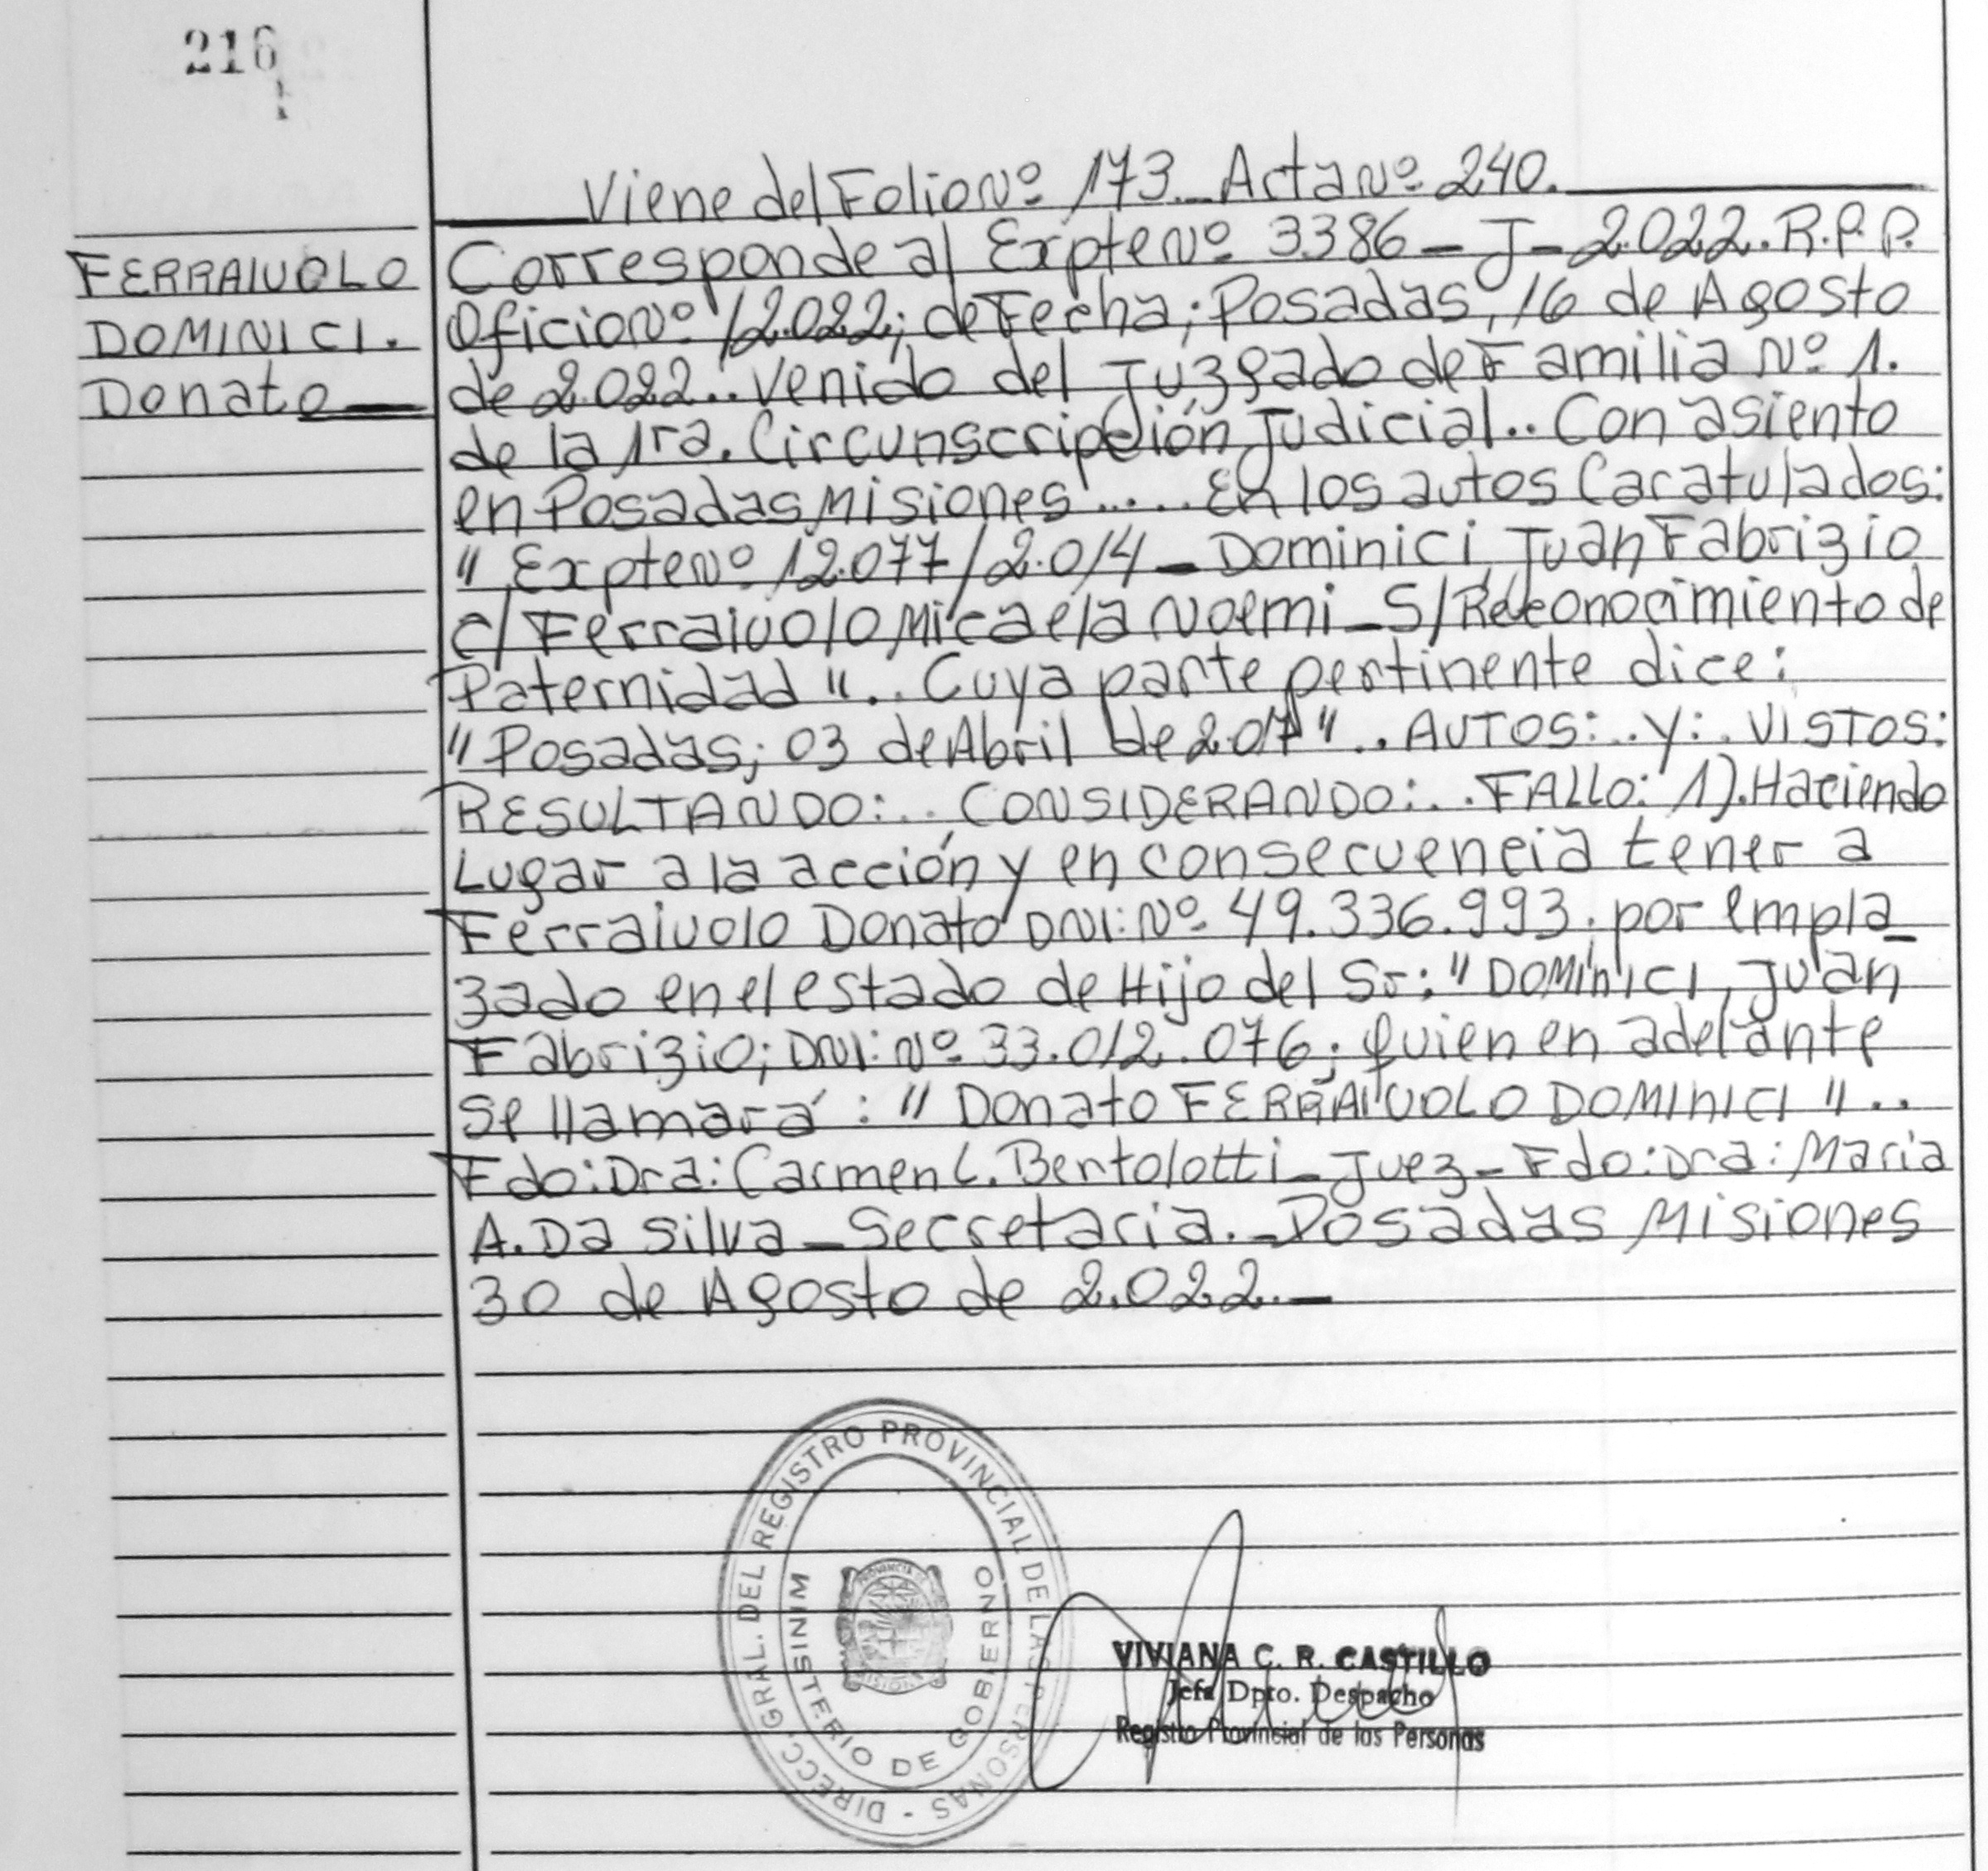 216
1
Viene del Folio Nº 173._ Acta Nº 240.
FERRAIUOLO
DOMINICI.
Donato
Corresponde al Expte Nº 3386 - J - 2.022. R.P.P.
Oficio Nº /2.022; de Fecha; Posadas, 16 de Agosto
de 2.022.. Venido del Juzgado de Familia Nº 1.
de la 1ra. Circunscripción Judicial.. Con asiento
en Posadas Misiones ..... En los autos Caratulados:
" Expte Nº 12.077/2.014 - Dominici Juan Fabrizio
c/ Ferraiuolo Micaela Noemi - S/ Reconocimiento de
Paternidad ".. Cuya parte pertinente dice:
" Posadas; 03 de Abril de 2.07 ".. AUTOS: .. Y: . VISTOS:
RESULTANDO: .. CONSIDERANDO: .. FALLO: 1). Haciendo
Lugar a la acción y en consecuencia tener a
Ferraiuolo Donato DNI: Nº 49.336.993. por empla_
zado en el estado de Hijo del Sr: " DOMINICI, Juan
Fabrizio; DNI: Nº 33.012.076; quien en adelante
se llamará : " Donato FERRAIUOLO DOMINICI " ..
Fdo: Dra: Carmen L. Bertolotti - Juez - Fdo: Dra: Maria
A. Da Silva - Secretaria. - Posadas Misiones
30 de Agosto de 2.022. -
DIRECC. GRAL. DEL REGISTRO PROVINCIAL DE LAS PERSONAS -
MINISTERIO DE GOBIERNO
PROVINCIA DE
MISIONES
VIVIANA C. R. CASTILLO
Jefa Dpto. Despacho
Registro Provincial de las Personas